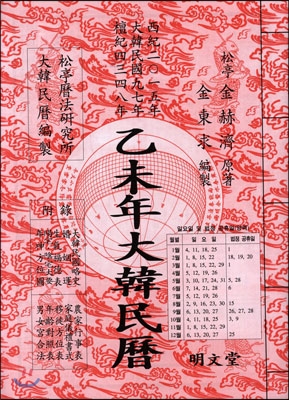 松亭 金赫濟 原著
金東求 編製
西紀二〇一五年
大韓民國九七年
檀紀四三四八年
松亭曆法硏究所
大韓民曆編製
乙未年大韓民曆
附錄
大韓民國略史
農家行事表
移徙方位表
年齡對照表
男女宮合法
월별 일요일 법정 공휴일
1월 4, 11, 18, 25 1
2월 1, 8, 15, 22 18, 19, 20
3월 1, 8, 15, 22, 29 1
4월 5, 12, 19, 26
5월 3, 10, 17, 24, 31
6월 7, 14, 21, 28 6
7월 5, 12, 19, 26
8월 2, 9, 16, 23, 30 15
9월 6, 13, 20, 27 26, 27, 28
10월 4, 11, 18, 25 3, 9
11월 1, 8, 15, 22, 29
12월
明文堂